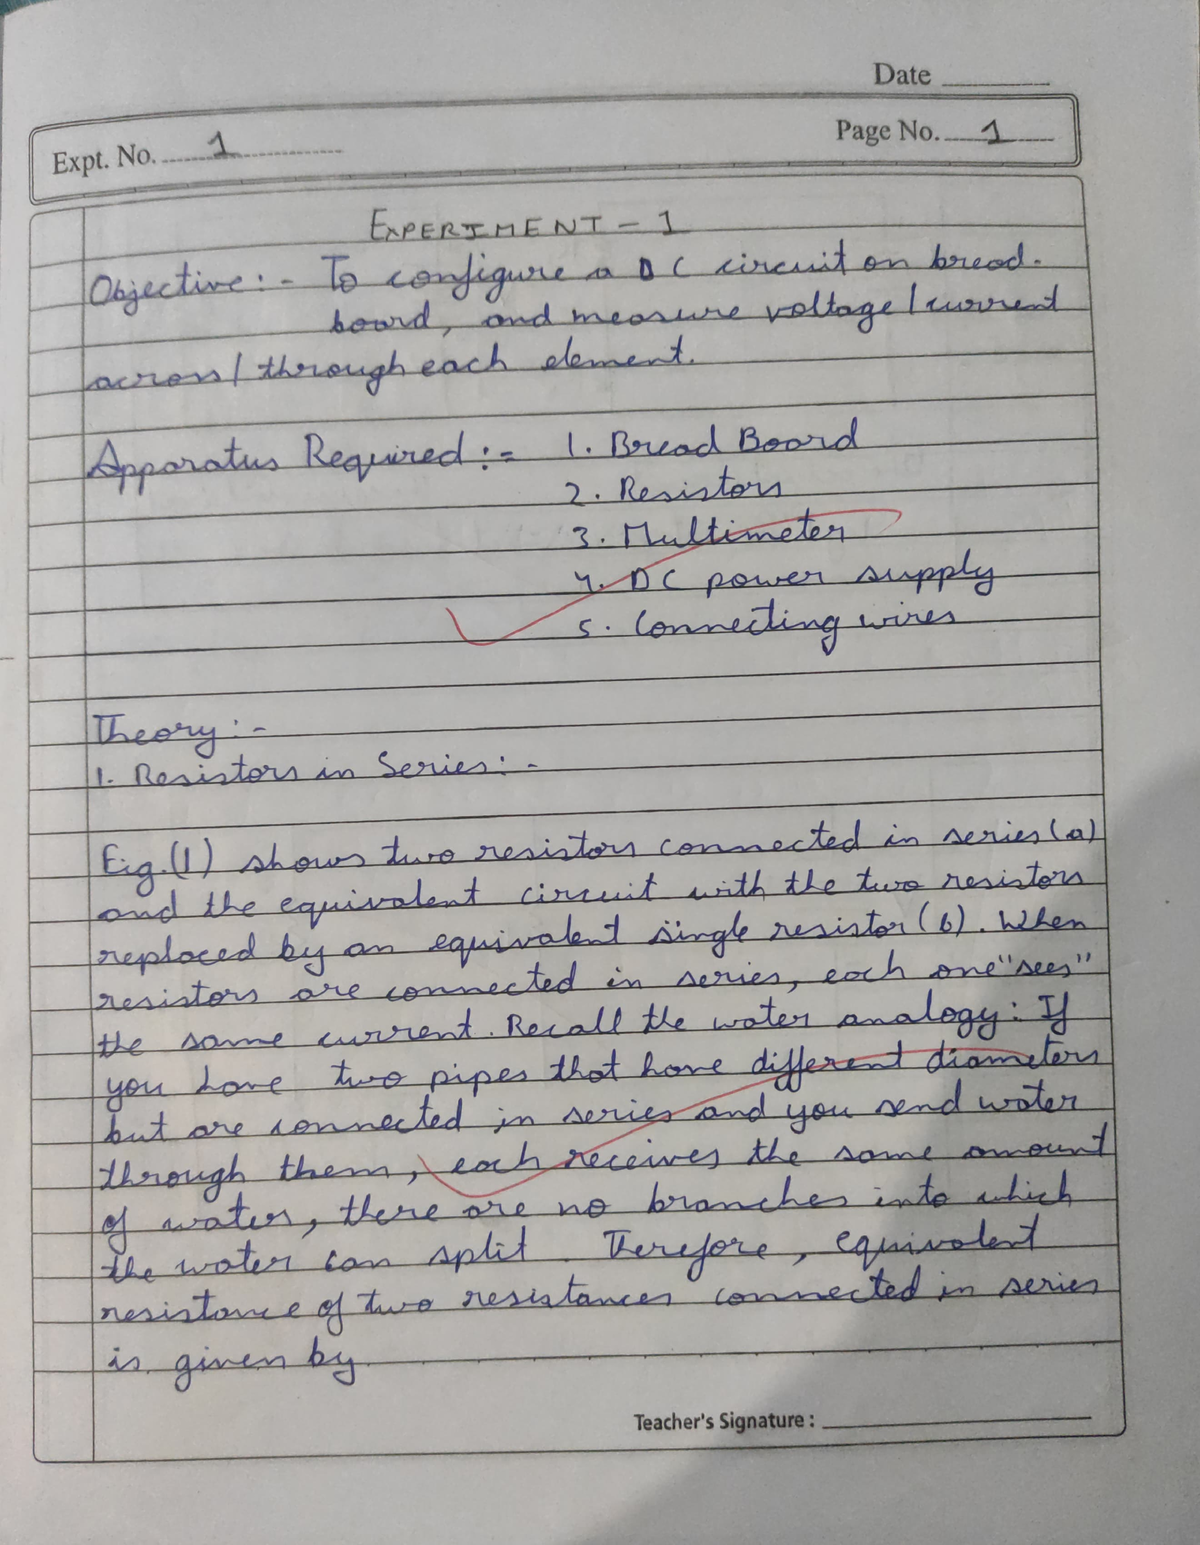 Date
Expt. No. 1
Page No. 1
EXPERIMENT - 1
Objective :- To configure a DC circuit on bread-
board, and measure voltage/current
across/through each element.
Apparatus Required :- 1. Bread Board
2. Resistors
3. Multimeter
4. DC power supply
5. Connecting wires
Theory :-
1. Resistors in Series :-
Fig.(1) shows two resistors connected in series (a)
and the equivalent circuit with the two resistors
replaced by an equivalent single resistor (b). When
resistors are connected in series, each one "sees"
the same current. Recall the water analogy: If
you have two pipes that have different diameters
but are connected in series and you send water
through them, each receives the same amount
of water, there are no branches into which
the water can split. Therefore, equivalent
resistance of two resistances connected in series
is given by
Teacher's Signature :